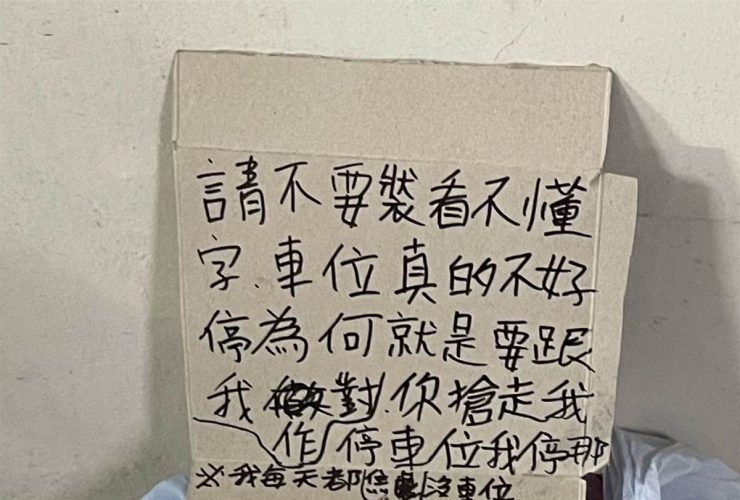 請不要裝看不懂
字.車位真的不好
停為何就是要跟
我作對.你搶走我
停車位我停那
※我每天都焦沒車位